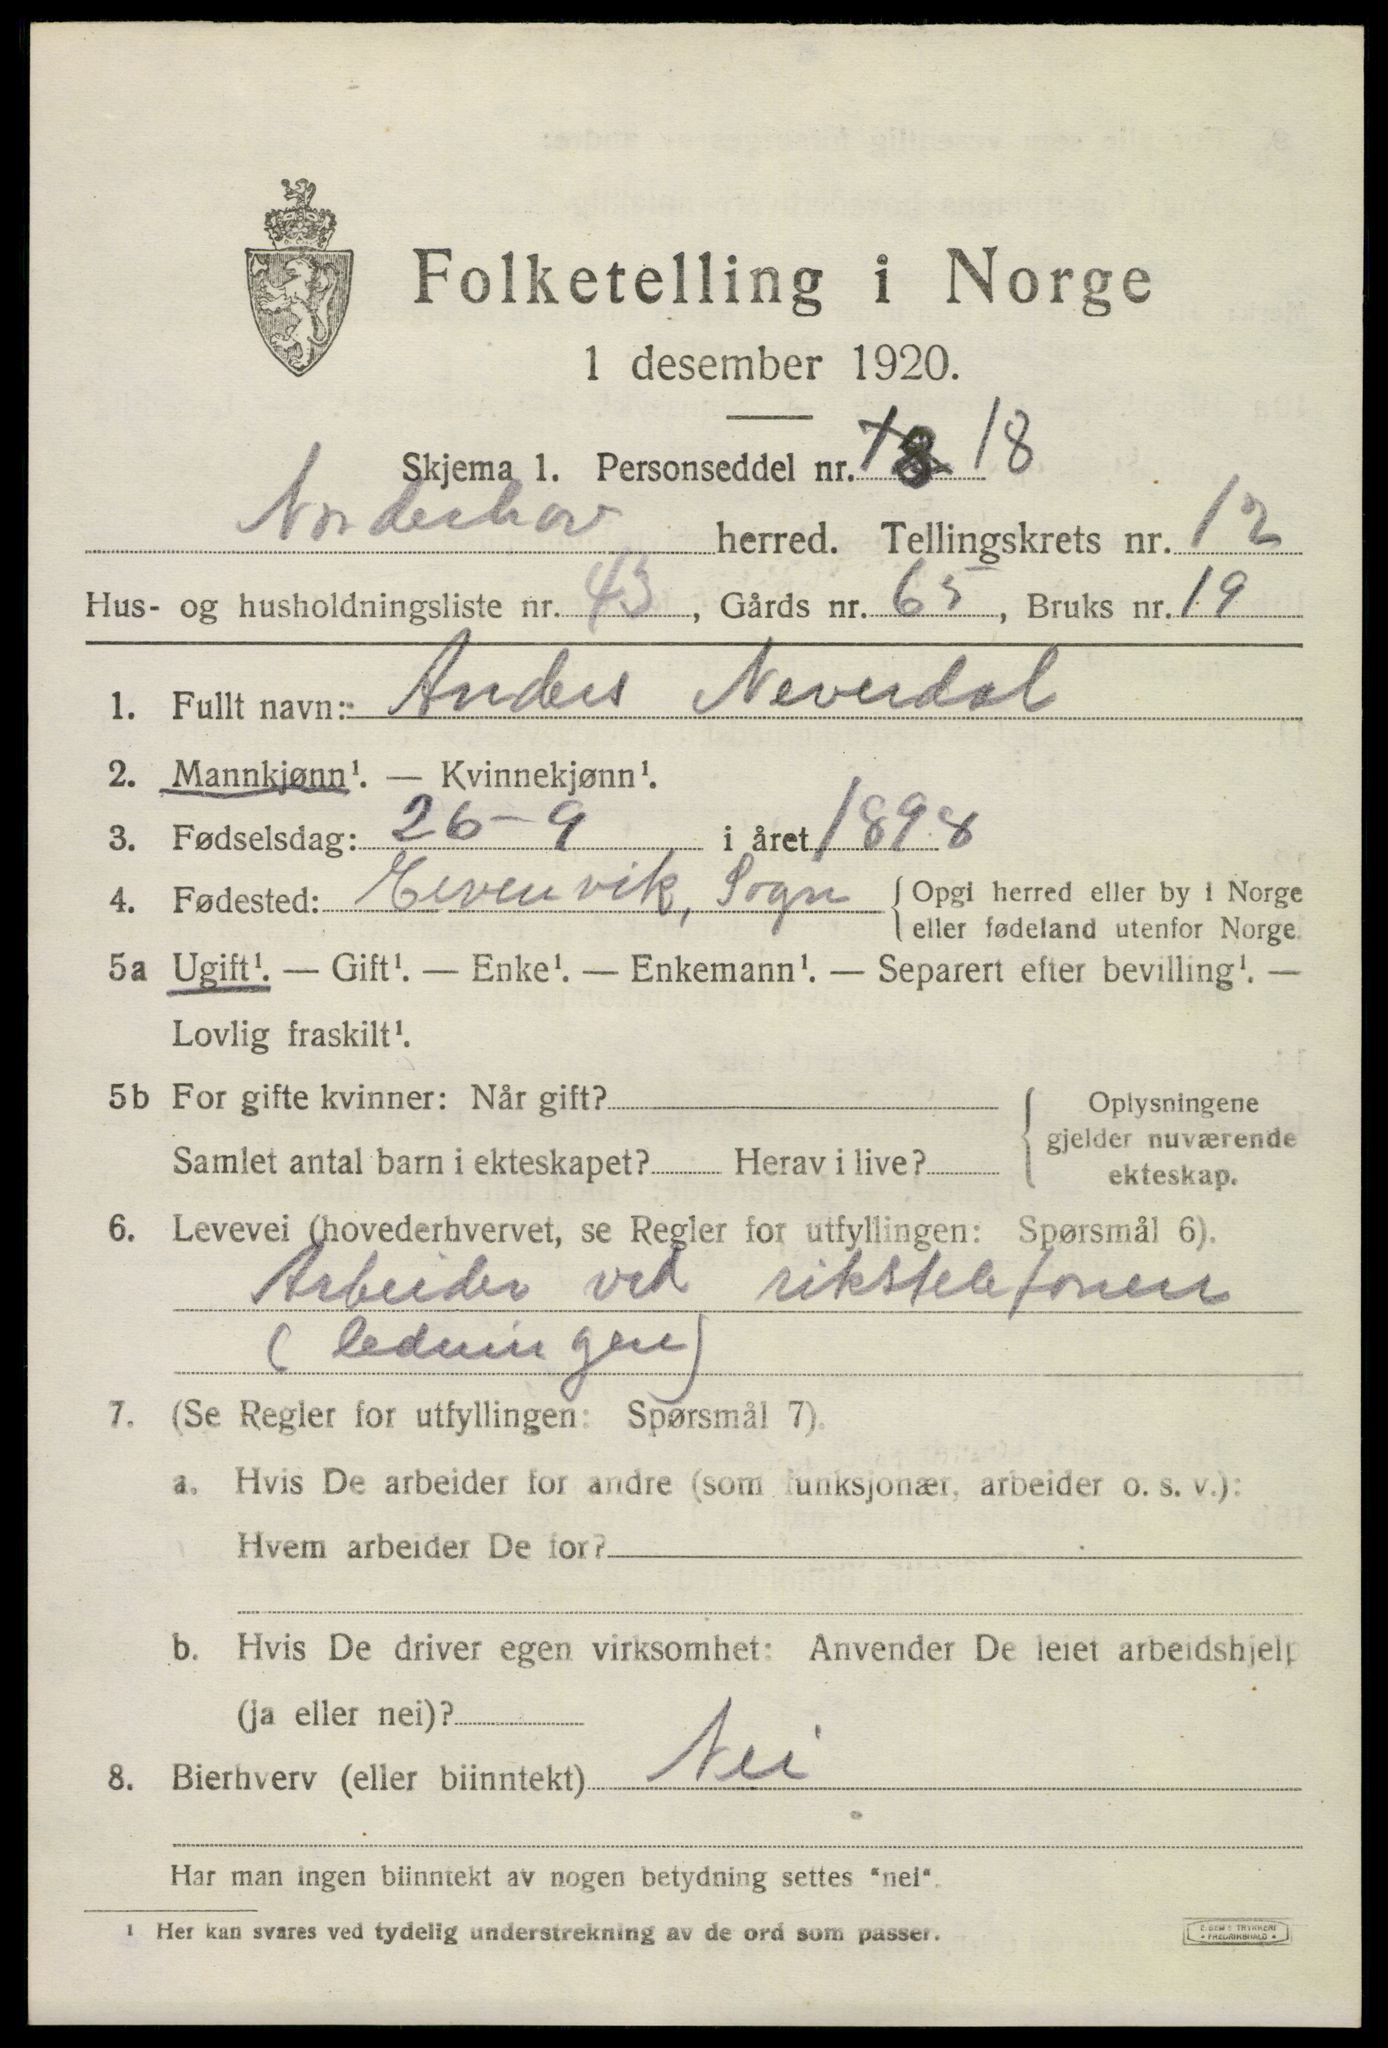 Folketelling i Norge
1 desember 1920.
Skjema 1. Personseddel nr. 18
Norderhov herred. Tellingskrets nr. 12
Hus- og husholdningsliste nr. 43, Gårds nr. 65, Bruks nr. 19
1. Fullt navn: Anders Neverdal
2. Mannkjønn¹. — Kvinnekjønn¹.
3. Fødselsdag: 26-9 i året 1898
4. Fødested: Eivenvik, Sogn { Opgi herred eller by i Norge
eller fødeland utenfor Norge.
5a Ugift¹. — Gift¹. — Enke¹. — Enkemann¹. — Separert efter bevilling¹. —
Lovlig fraskilt¹.
5b For gifte kvinner: Når gift?
Samlet antal barn i ekteskapet? Herav i live?
Oplysningene
gjelder nuværende
ekteskap.
6. Levevei (hovederhvervet, se Regler for utfyllingen: Spørsmål 6).
Arbeider ved rikstelefonen
(ledningen)
7. (Se Regler for utfyllingen: Spørsmål 7).
a. Hvis De arbeider for andre (som funksjonær, arbeider o. s. v.):
Hvem arbeider De for?
b. Hvis De driver egen virksomhet: Anvender De leiet arbeidshjelp
(ja eller nei)?
8. Bierhverv (eller biinntekt) Nei
Har man ingen biinntekt av nogen betydning settes "nei".
¹ Her kan svares ved tydelig understrekning av de ord som passer.
TRYKKERI
FREDRIKSHALD